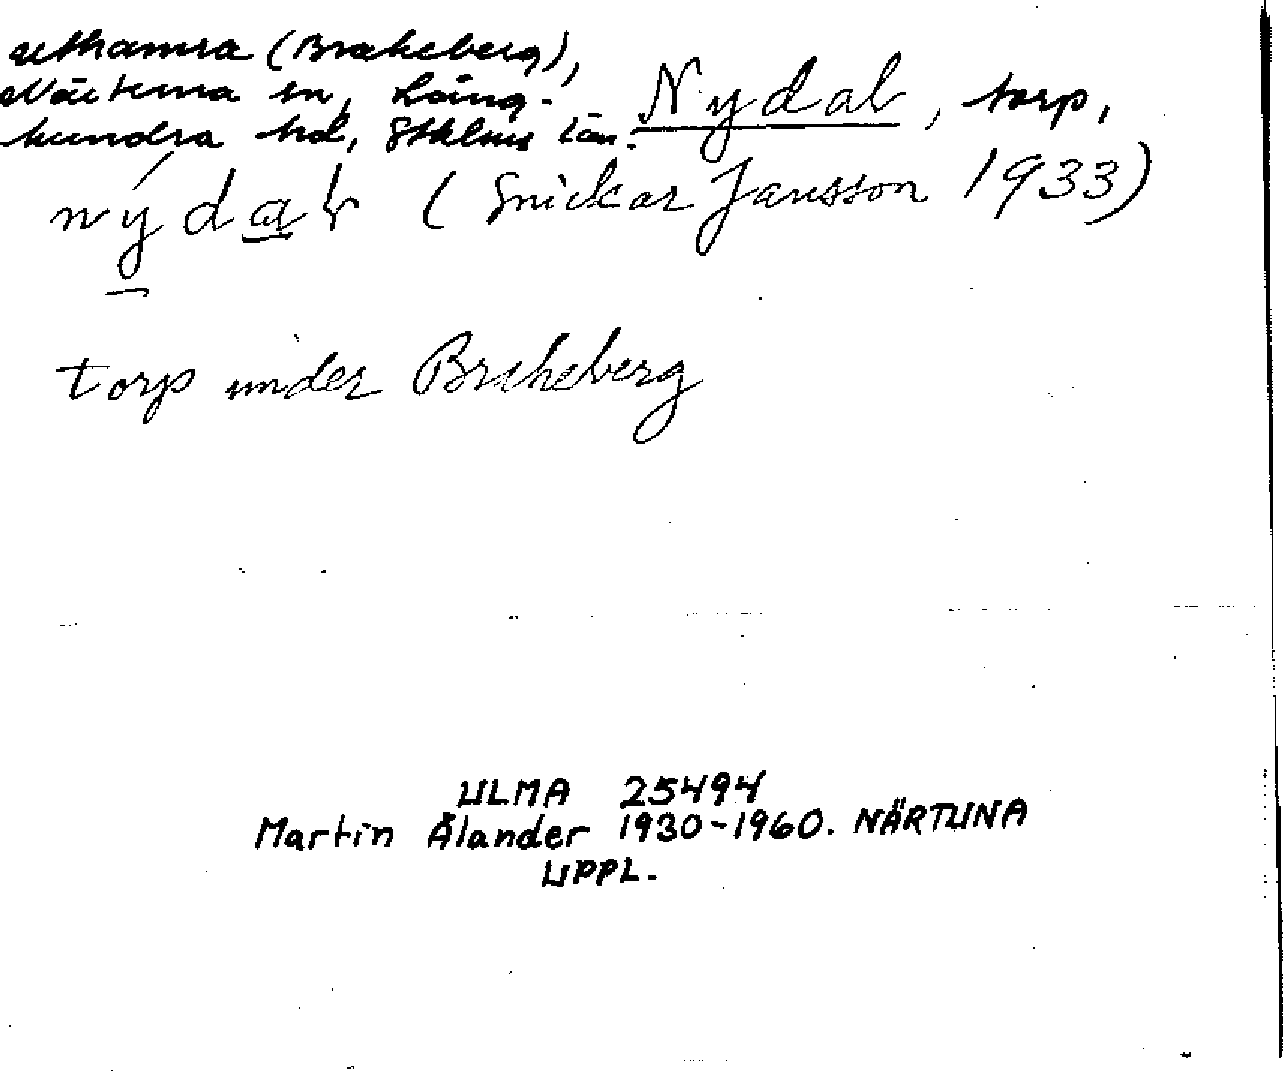 uthamra (Braheberg),
Närtuna sn, Lång-
hundra hd, Sthlms län. Nydal, torp,
nýdal (Snickar Jansson 1933)
torp under Braheberg
ULMA 25494
Martin Ålander 1930-1960. NÄRTUNA
UPPL.